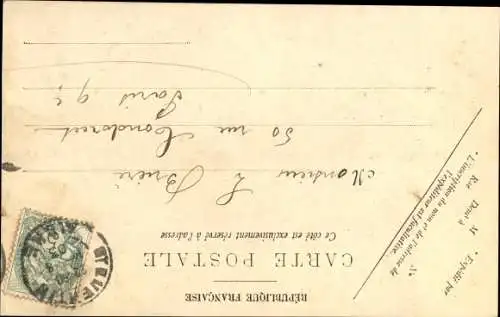 RÉPUBLIQUE FRANÇAISE
CARTE POSTALE
Ce côté est exclusivement réservé à l'adresse
Monsieur L. Brière
50 rue Condorcet
Paris 9e
• Expédié par
M
Demt à
Rue
N°
• L'inscription du nom et de l'adresse de
l'expéditeur est facultative.